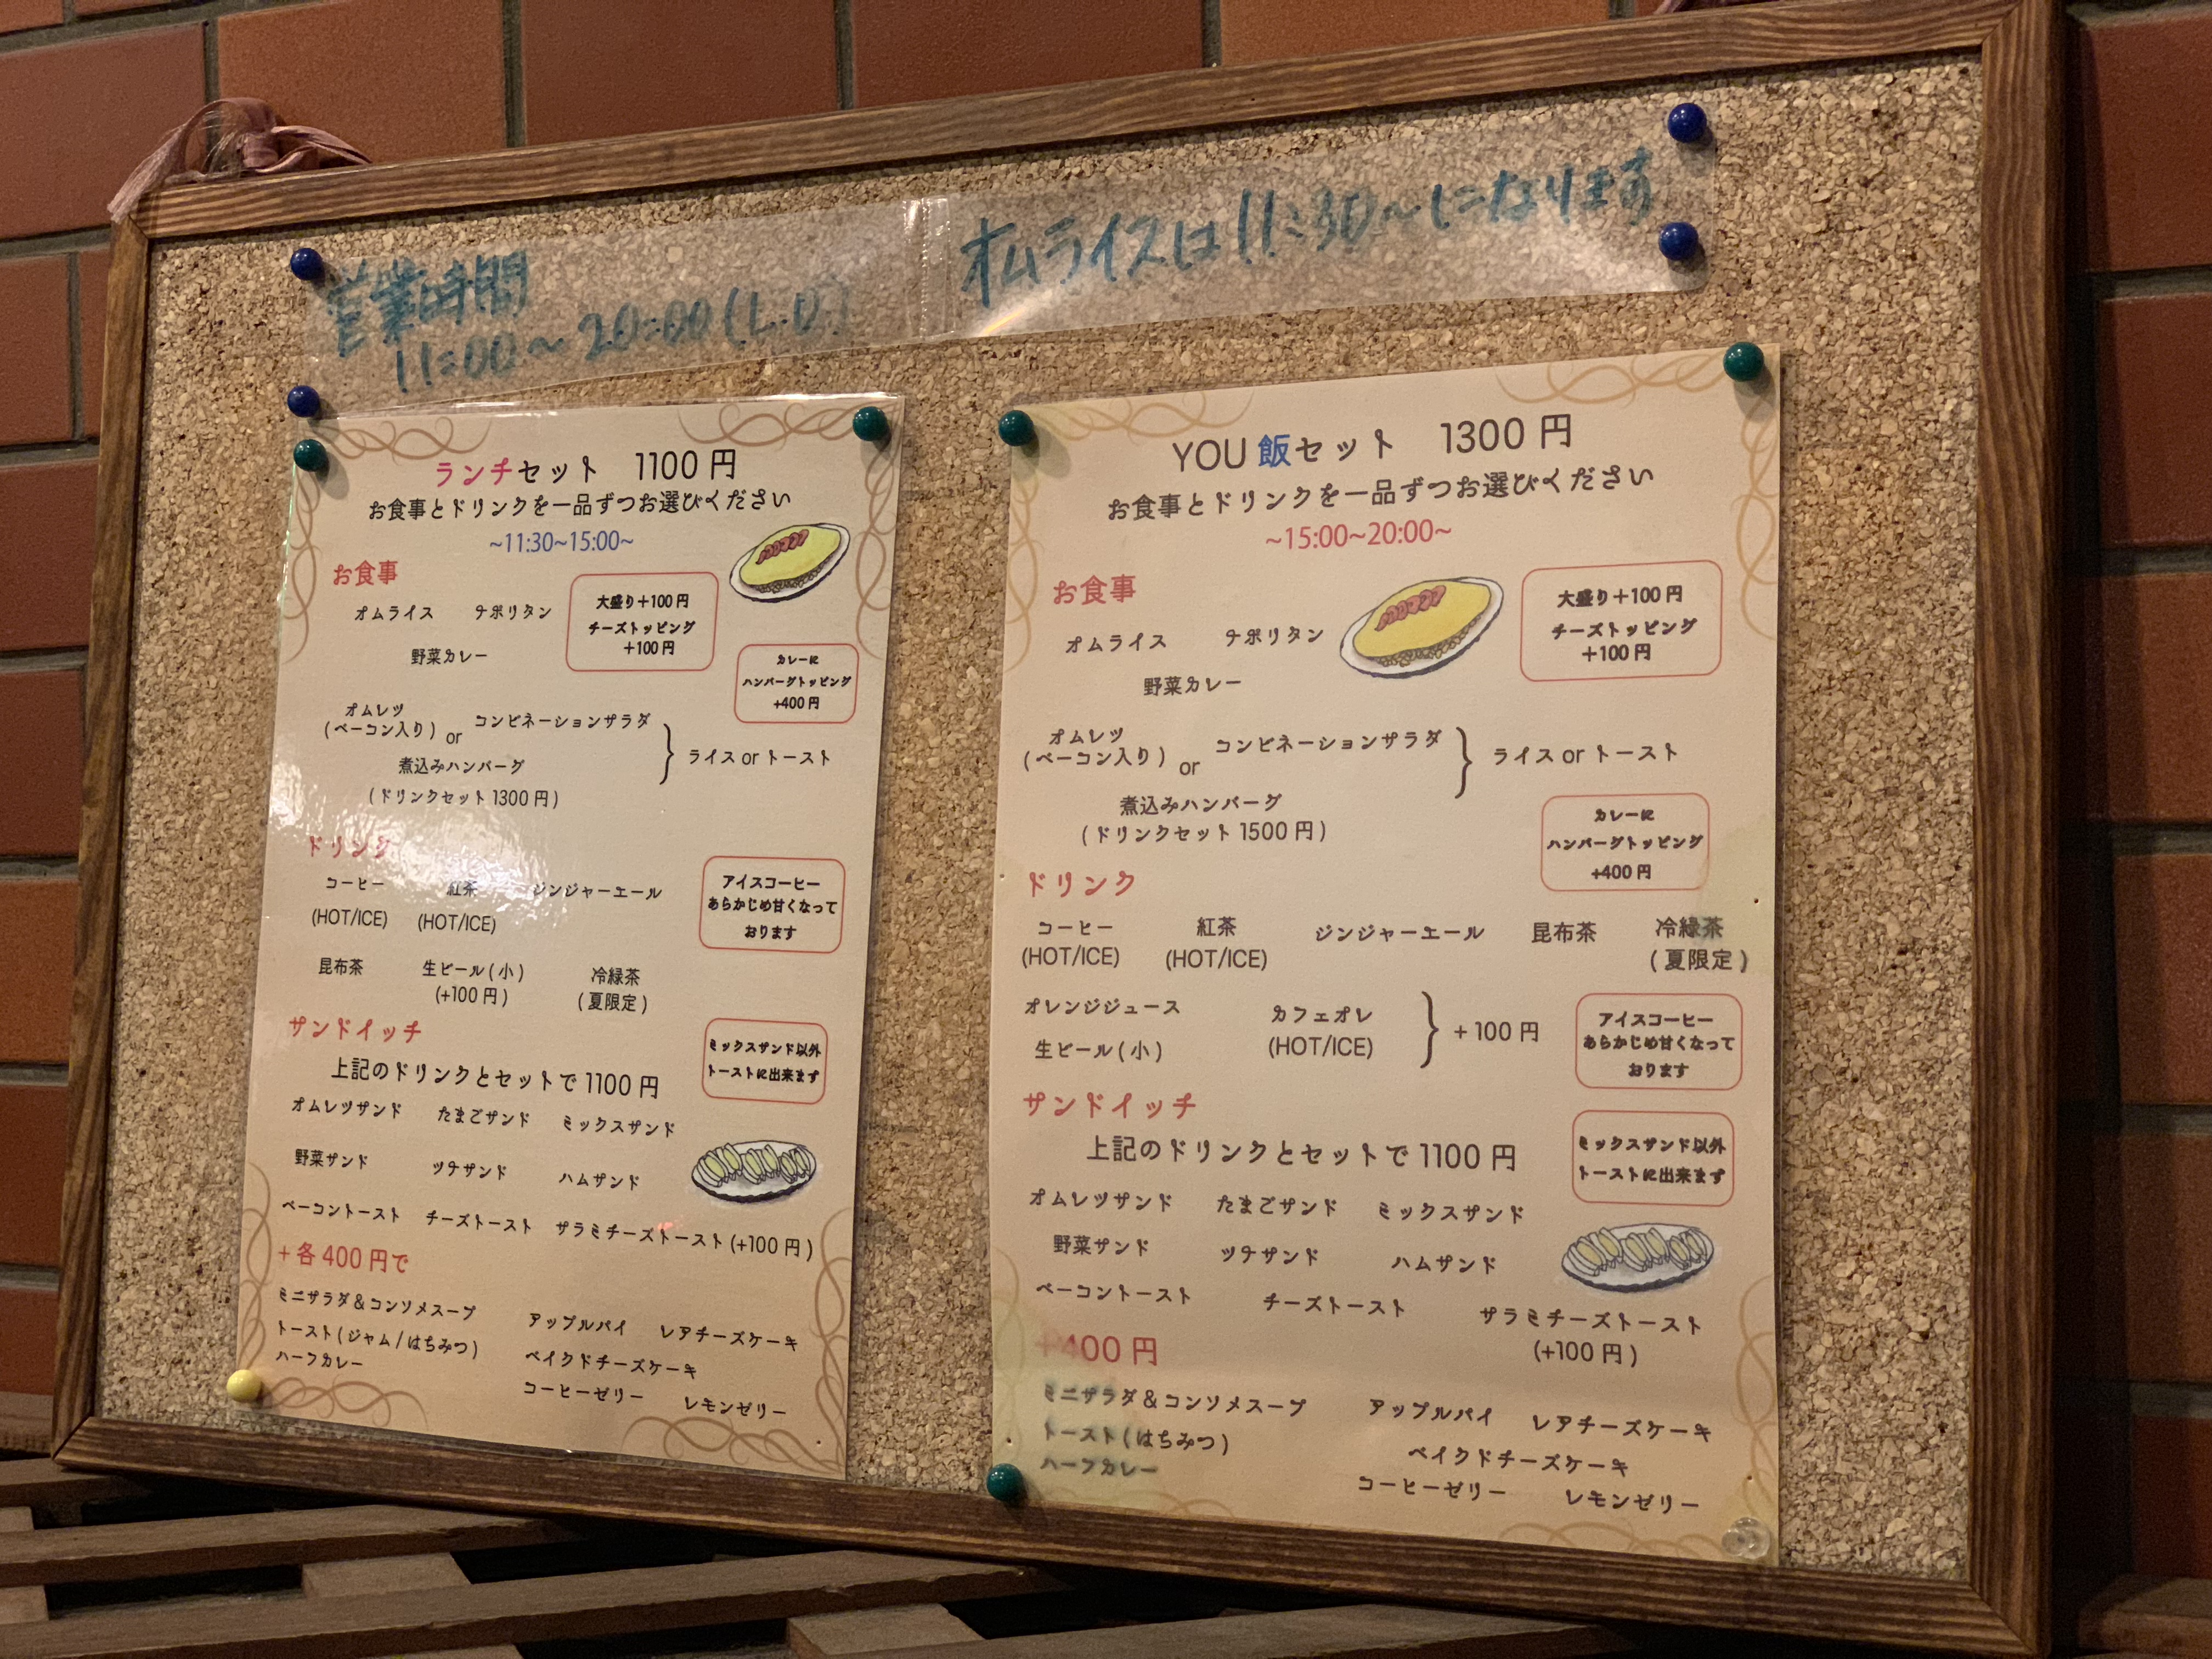 営業時間
11:00~20:00(L.O.)
オムライスは11:30~になります
ランチセット 1100 円
お食事とドリンクを一品ずつお選びください
~11:30~15:00~
お食事
オムライス ナポリタン
野菜カレー
大盛り+100 円
チーズトッピング
+100 円
カレーに
ハンバーグトッピング
+400 円
オムレツ
(ベーコン入り) or コンビネーションサラダ
煮込みハンバーグ
(ドリンクセット 1300 円)
} ライス or トースト
ドリンク
コーヒー 紅茶 ジンジャーエール
(HOT/ICE) (HOT/ICE)
昆布茶 生ビール(小) 冷緑茶
(+100 円) (夏限定)
アイスコーヒー
あらかじめ甘くなって
おります
サンドイッチ
上記のドリンクとセットで 1100 円
ミックスサンド以外
トーストに出来ます
オムレツサンド たまごサンド ミックスサンド
野菜サンド ツナサンド ハムサンド
ベーコントースト チーズトースト サラミチーズトースト(+100 円)
+各 400 円で
ミニサラダ&コンソメスープ
トースト(ジャム/はちみつ)
ハーフカレー
アップルパイ レアチーズケーキ
ベイクドチーズケーキ
コーヒーゼリー レモンゼリー
YOU 飯セット 1300 円
お食事とドリンクを一品ずつお選びください
~15:00~20:00~
お食事
オムライス ナポリタン
野菜カレー
大盛り+100 円
チーズトッピング
+100 円
オムレツ
(ベーコン入り) or コンビネーションサラダ
煮込みハンバーグ
(ドリンクセット 1500 円)
} ライス or トースト
カレーに
ハンバーグトッピング
+400 円
ドリンク
コーヒー 紅茶 ジンジャーエール 昆布茶 冷緑茶
(HOT/ICE) (HOT/ICE) (夏限定)
オレンジジュース カフェオレ
生ビール(小) (HOT/ICE)
} + 100 円
アイスコーヒー
あらかじめ甘くなって
おります
サンドイッチ
上記のドリンクとセットで 1100 円
ミックスサンド以外
トーストに出来ます
オムレツサンド たまごサンド ミックスサンド
野菜サンド ツナサンド ハムサンド
ベーコントースト チーズトースト サラミチーズトースト
(+100 円)
+400 円
ミニサラダ&コンソメスープ
トースト(はちみつ)
ハーフカレー
アップルパイ レアチーズケーキ
ベイクドチーズケーキ
コーヒーゼリー レモンゼリー